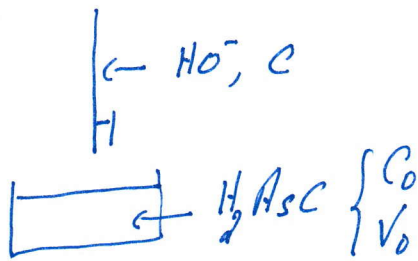 HO⁻, C
H₂AsC { C₀
V₀